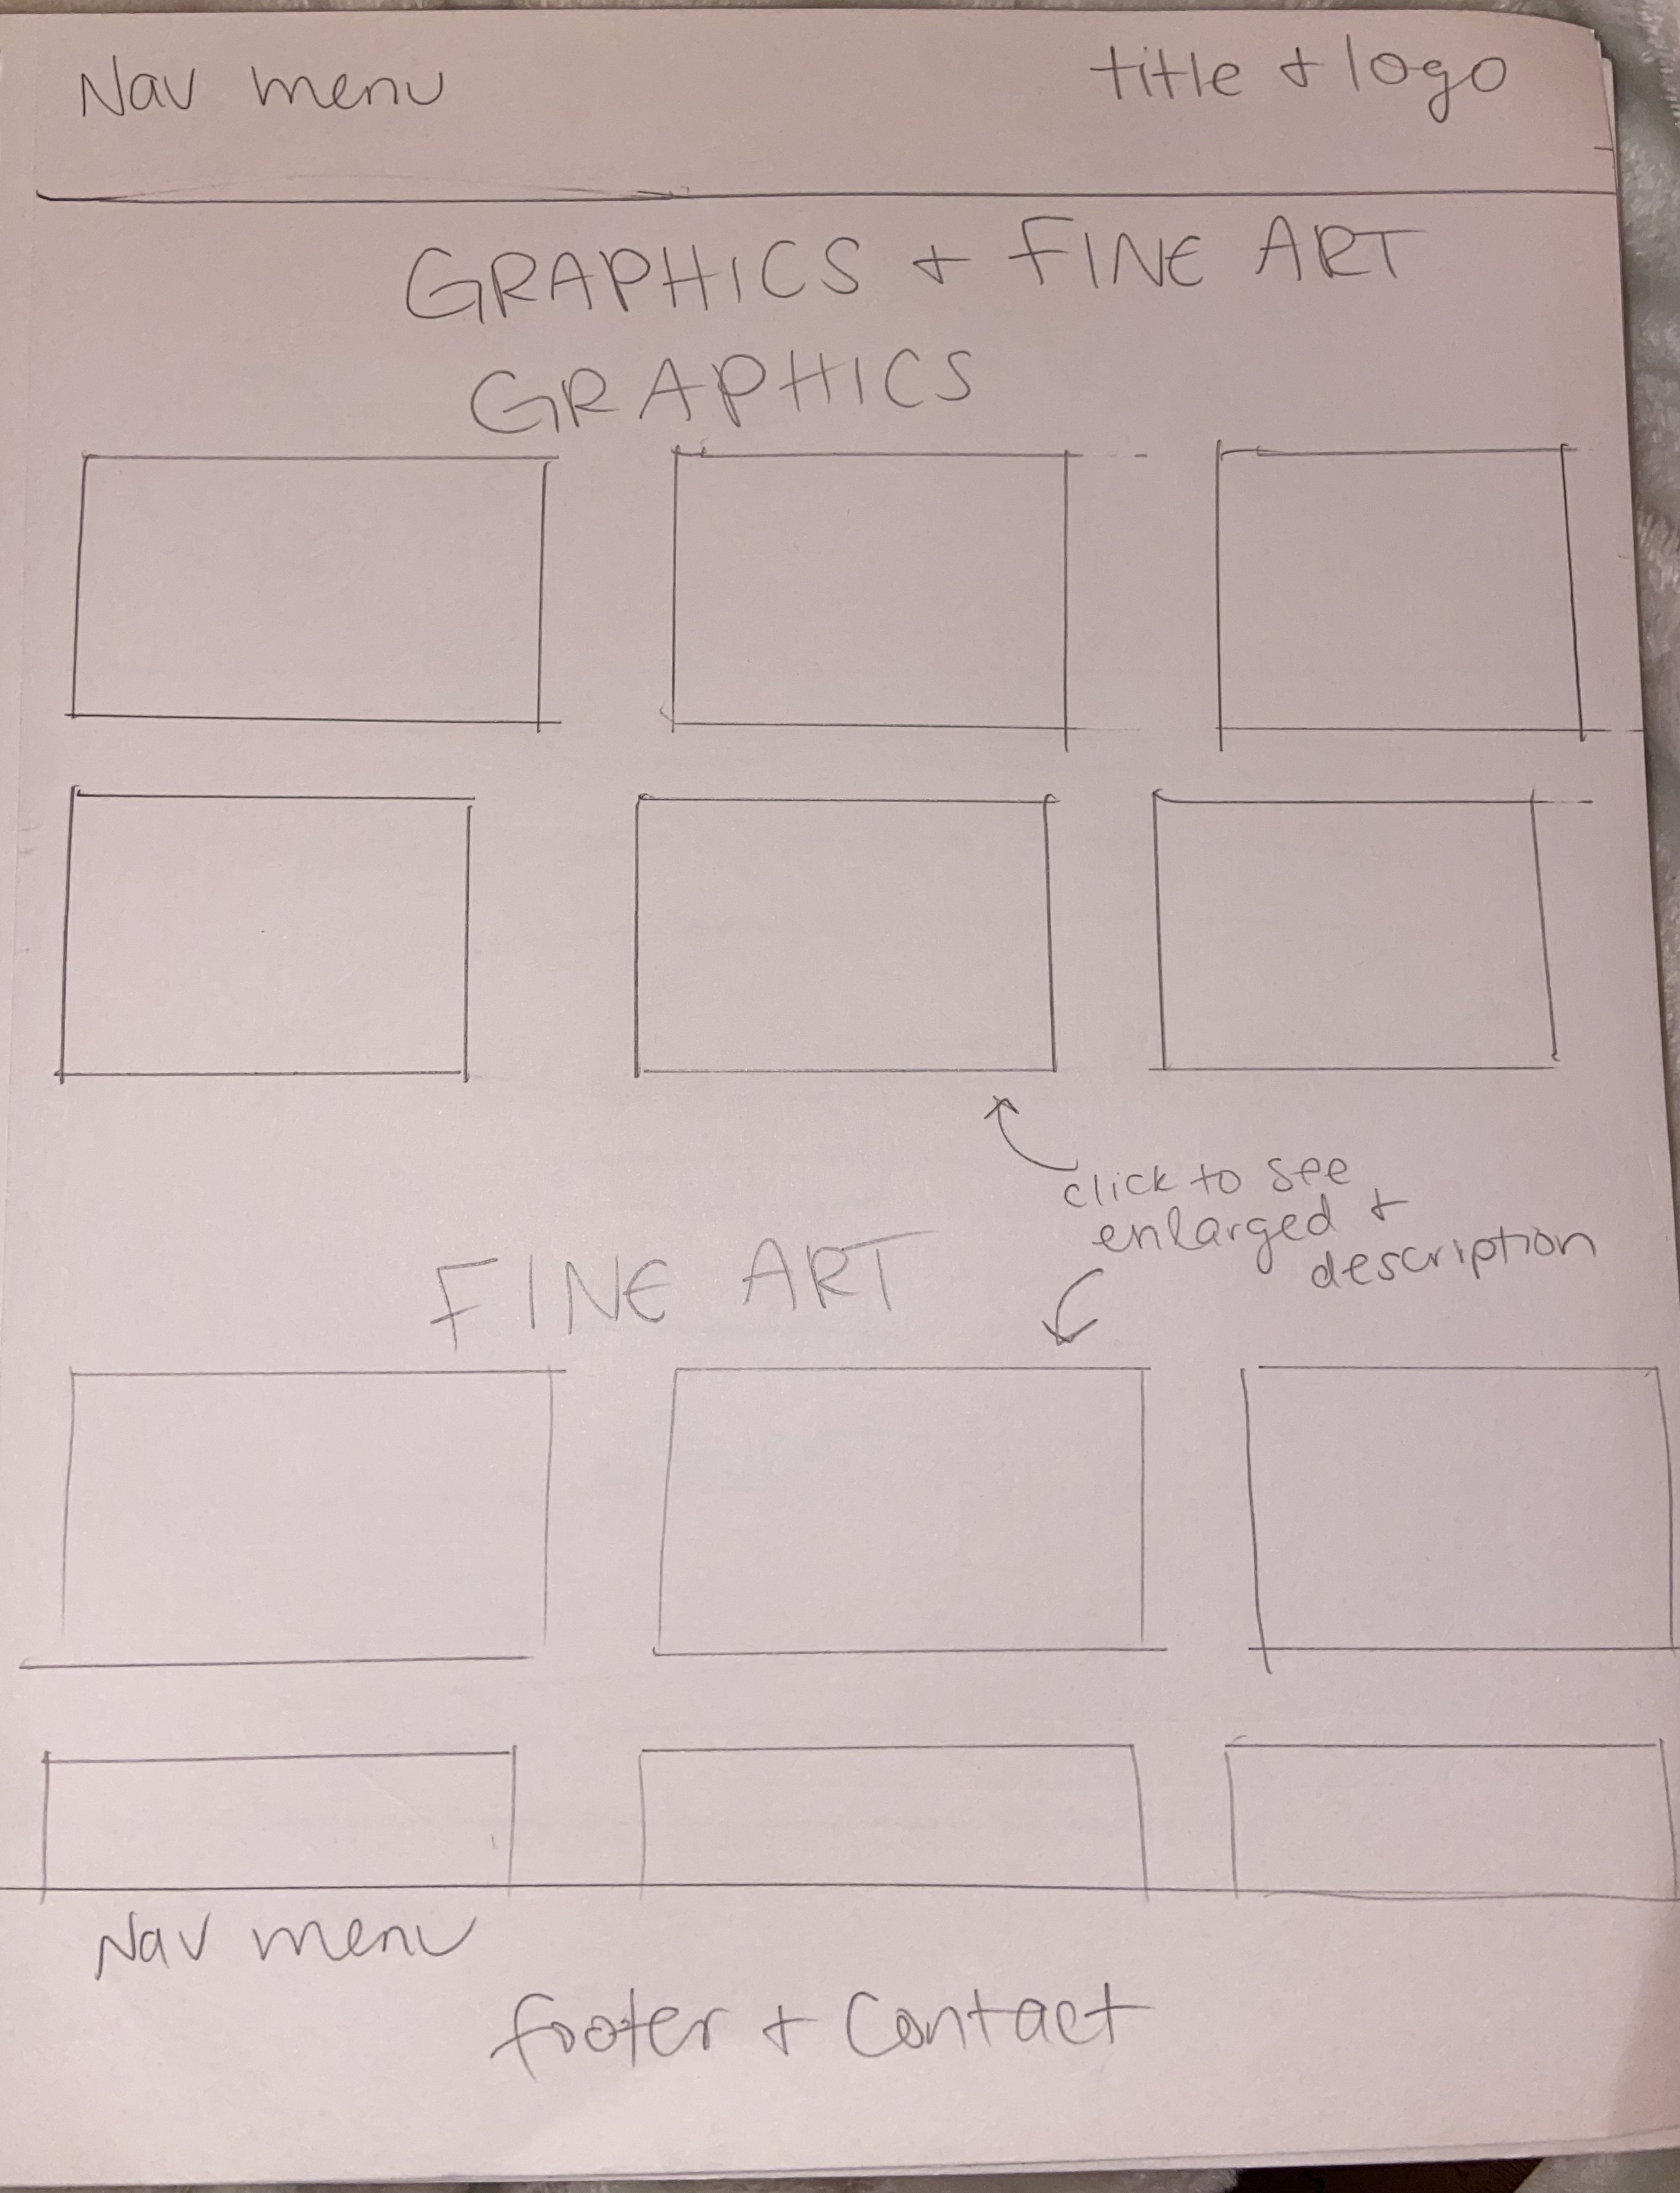 Nav menu
title + logo
GRAPHICS + FINE ART
GRAPHICS
click to see
enlarged +
description
FINE ART
Nav menu
footer + Contact